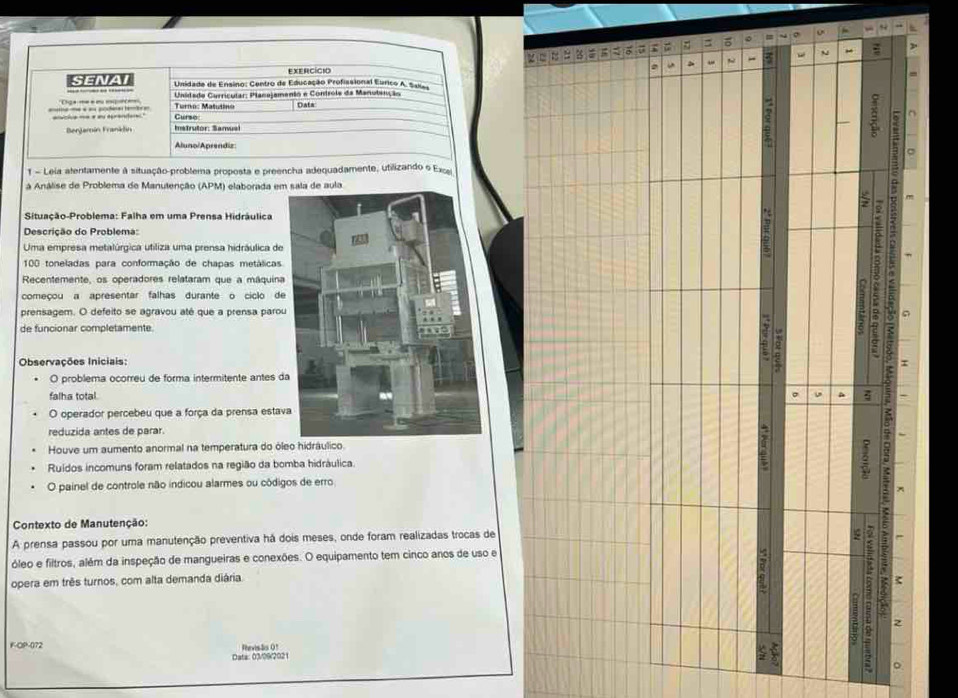 SENAI
EXERCÍCIO
Unidade de Ensino: Centro de Educação Profissional Eurico A. Salles
Unidade Curricular: Planejamento e Controle da Manutenção
Turno: Matutino Data:
Curso:
Instrutor: Samuel
Aluno/Aprendiz:
Benjamin Franklin
1 – Leia atentamente à situação-problema proposta e preencha adequadamente, utilizando o Excel
à Análise de Problema de Manutenção (APM) elaborada em sala de aula.
Situação-Problema: Falha em uma Prensa Hidráulica
Descrição do Problema:
Uma empresa metalúrgica utiliza uma prensa hidráulica de
100 toneladas para conformação de chapas metálicas.
Recentemente, os operadores relataram que a máquina
começou a apresentar falhas durante o ciclo de
prensagem. O defeito se agravou até que a prensa parou
de funcionar completamente.
Observações Iniciais:
• O problema ocorreu de forma intermitente antes da
falha total.
• O operador percebeu que a força da prensa estava
reduzida antes de parar.
• Houve um aumento anormal na temperatura do óleo hidráulico.
• Ruídos incomuns foram relatados na região da bomba hidráulica.
• O painel de controle não indicou alarmes ou códigos de erro.
Contexto de Manutenção:
A prensa passou por uma manutenção preventiva há dois meses, onde foram realizadas trocas de
óleo e filtros, além da inspeção de mangueiras e conexões. O equipamento tem cinco anos de uso e
opera em três turnos, com alta demanda diária.
F-OP-072
Revisão 01
Data: 03/09/2021
A B C D E F G H I J K L M N O
Levantamento das possíveis causas e validação (Método, Máquina, Mão de Obra, Material, Meio Ambiente, Medição)
Nº Descrição Foi validada como causa de quebra? Nº Descrição Foi validada como causa de quebra?
S/N Comentários S/N Comentários
1 4
2 5
3 6
5 Por quês Ação?
Nº 1º Por quê? 2º Por quê? 3º Por quê? 4º Por quê? 5º Por quê? S/N
1
2
3
4
5
6